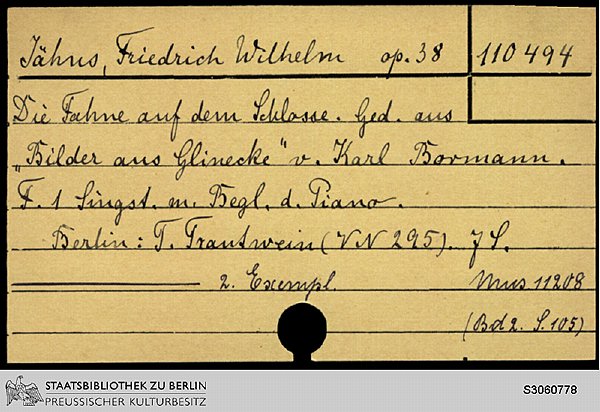 Jähns, Friedrich Wilhelm op. 38 110 494
Die Fahne auf dem Schlosse. Ged. aus
„Bilder aus Glinecke" v. Karl Bormann.
F. 1 Singst. m. Begl. d. Piano.
Berlin: T. Trautwein (VN 295). 7 S.
2. Exempl. Mus 11208
(Bd 2. S. 105)
STAATSBIBLIOTHEK ZU BERLIN
PREUSSISCHER KULTURBESITZ
S3060778